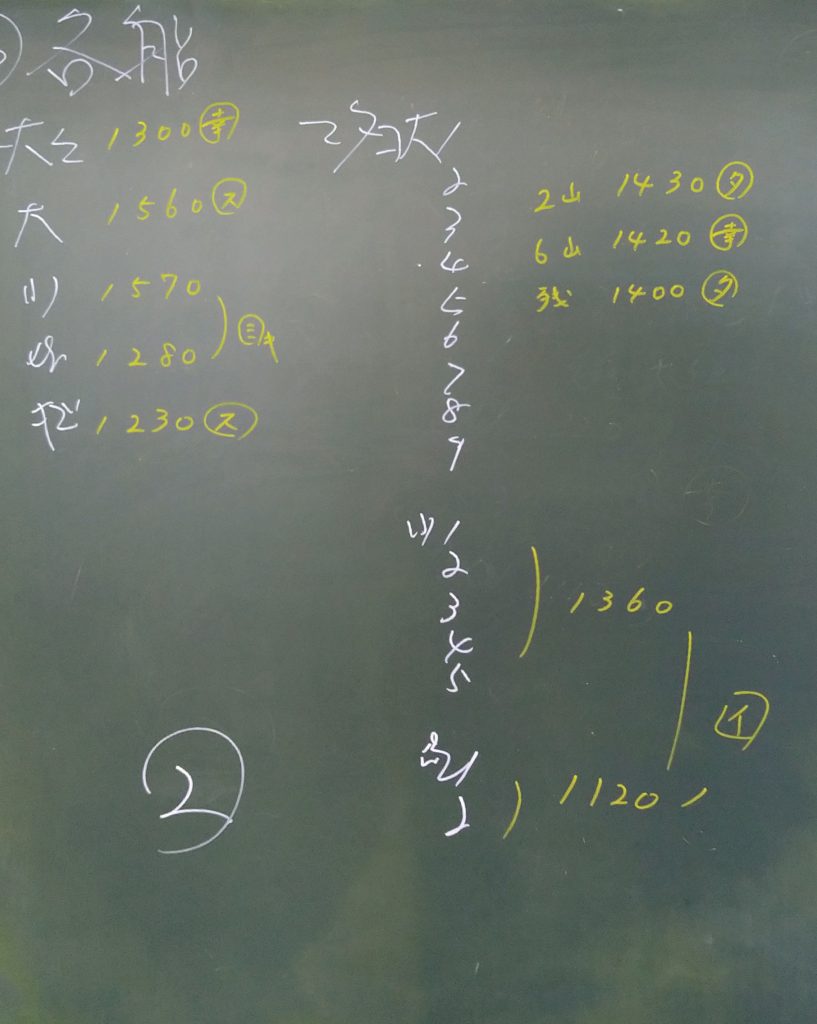 各船
大 1300 幸
大 1560 ス
小 1570
1280
1230 ス
大 1
2
3
4
5
6
7
8
9
2山 1430 タ
6山 1420 幸
残 1400 タ
小 1
2
3
4
5
1360
イ
1
2
1120
②